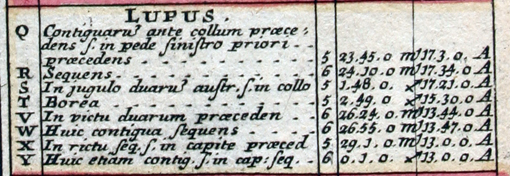 LUPUS.
Q Contiguaru' ante collum præce-
dens s. in pede sinistro priori
præcedens 5 23.45.0 ♏ 17.3.0. A
R Sequens 6 24.10.0 ♏ 17.34.0. A
S In jugulo duaru' austr. s. in collo 5 1.48.0. ♐ 17.21.0. A
T Borea 5 2.49.0 ♐ 15.30.0. A
V In victu duarum præceden 6 26.24.0 ♏ 13.44.0. A
W Huic contigua sequens 6 26.55.0 ♏ 13.47.0. A
X In rictu seq. s. in capite præced 5 29.1.0 ♏ 13.0.0. A
Y Huic etiam contig. s. in cap: seq. 6 0.1.0. ♐ 13.0.0. A